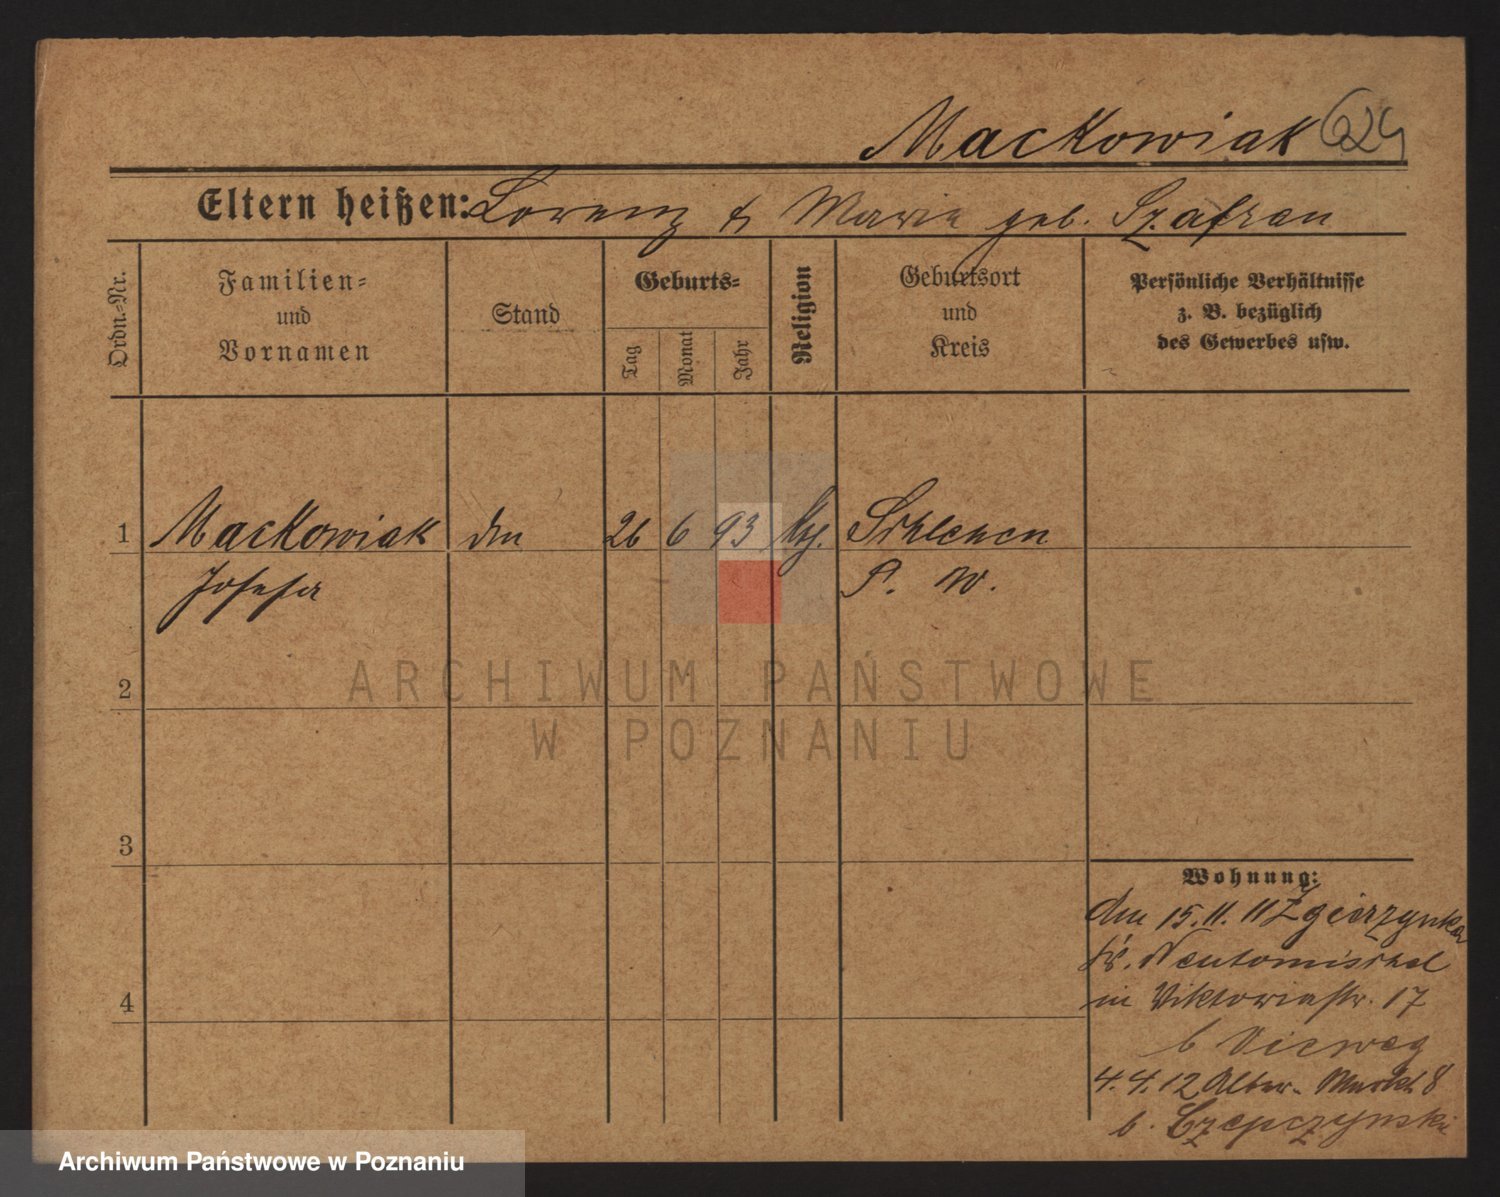 Mackowiak 624
Eltern heißen: Lorenz & Marie geb. Szafran
Ordn.=Nr.
Familien=
und
Vornamen
Stand
Geburts=
Tag
Monat
Jahr
Religion
Geburtsort
und
Kreis
Persönliche Verhältnisse
z. B. bezüglich
des Gewerbes usw.
1 Mackowiak 26 6 93 Schlehen
Josefa P. W.
2
ARCHIWUM PAŃSTWOWE
W POZNANIU
3
4
Wohnung:
15.11.11 Zgierzynka
Kr. Neutomischel
in Viktoriastr. 17
b Vieweg
4.4.12 Alter Markt 8
b. Czepczynski
Archiwum Państwowe w Poznaniu